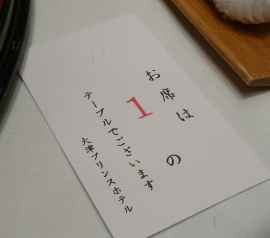 お席は 1 の
テーブルでございます
大津プリンスホテル